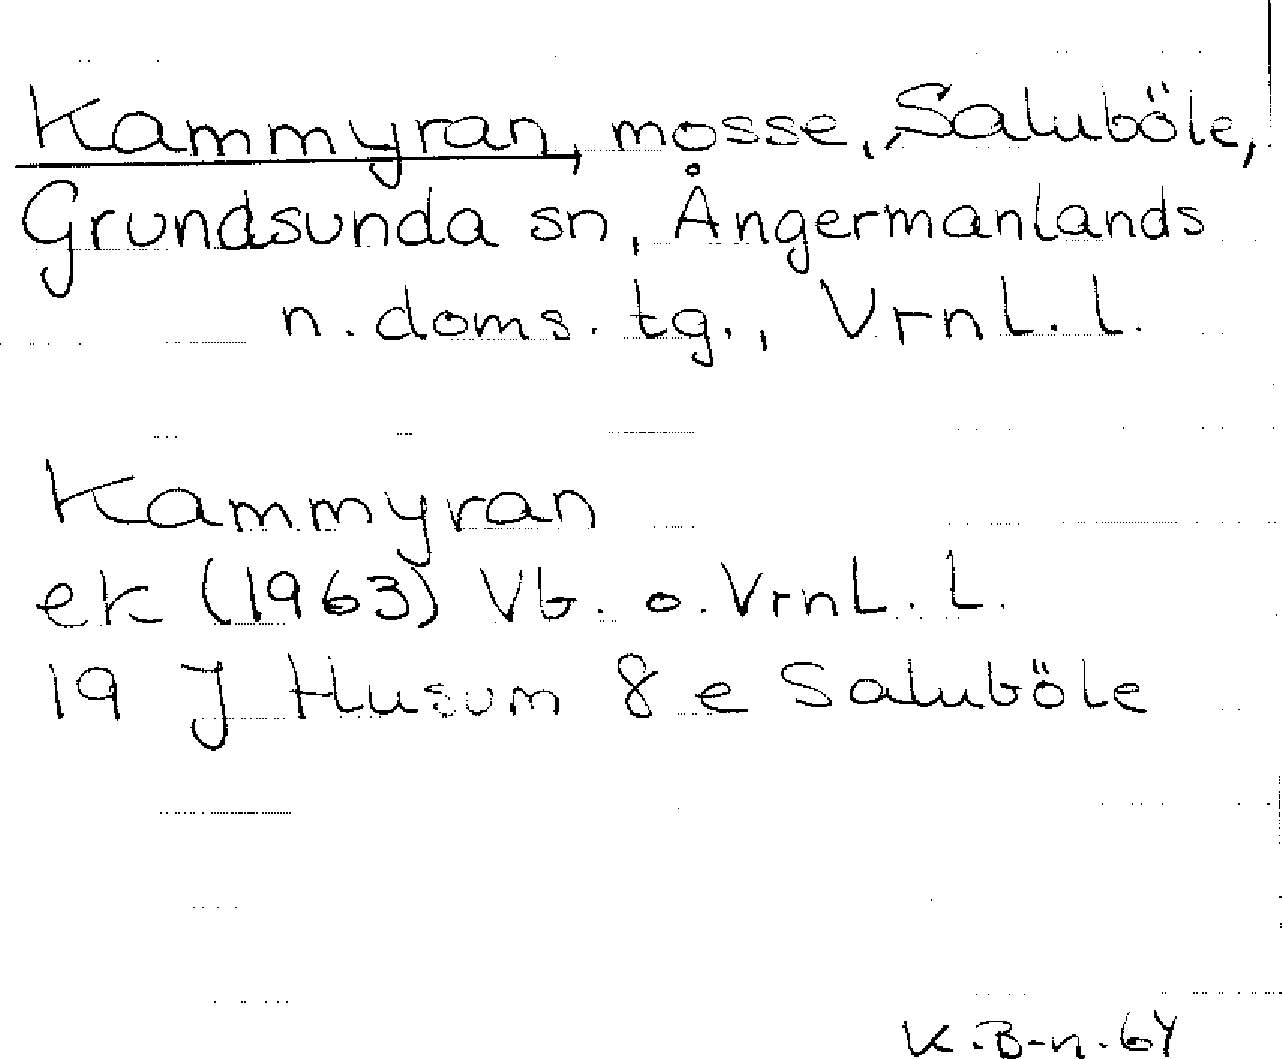 Kammyran, mosse, Saluböle,
Grundsunda sn, Ångermanlands
n. doms. tg., Vrnl. l.
Kammyran
ek (1963) Vb. o. Vrnl. l.
19 J Husum 8 e Saluböle
K.B-n. 64